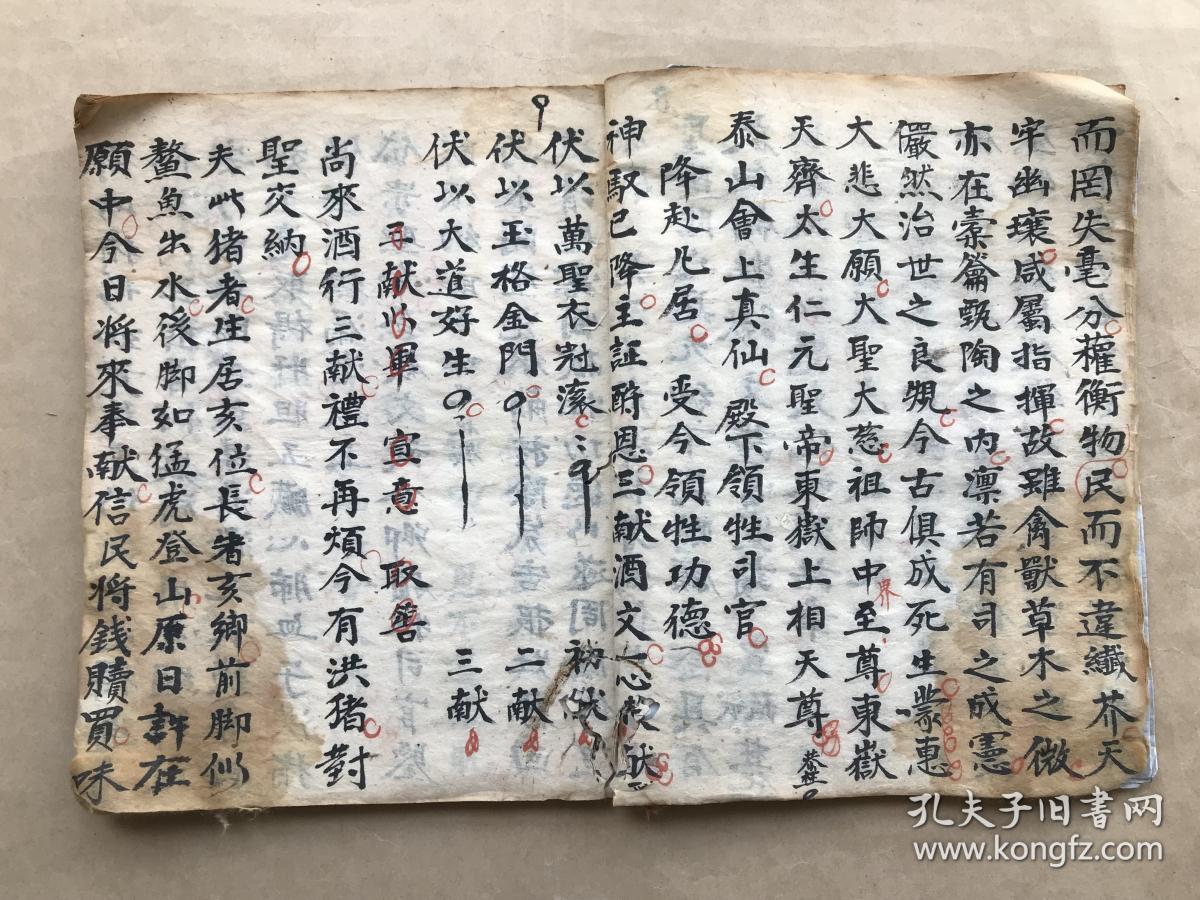 而罔失毫分權衡物民而不違纖芥天
牢幽壤咸屬指揮故雖禽獸草木之微
亦在橐籥甄陶之内凛若有司之成憲
儼然治世之良規今古俱成死生蒙惠
大悲大願大聖大慈祖師中界至尊東嶽
天齊太生仁元聖帝東嶽上相天尊
泰山會上真仙 殿下領牲司官
降赴几居 受今領牲功德
神馭已降主証酧恩三献酒文一心
伏以萬聖衣冠滚 初献
伏以玉格金門 二献
伏以大道好生 三献
三献以畢 宣意 取善
尚來酒行三献禮不再煩今有洪猪對
聖交納
夫此猪者生居亥位長者亥鄉前脚似
鰲魚出水後脚如猛虎登山原日許在
願中今日將來奉献信民将錢贖買味
孔夫子旧书网
www.kongfz.com